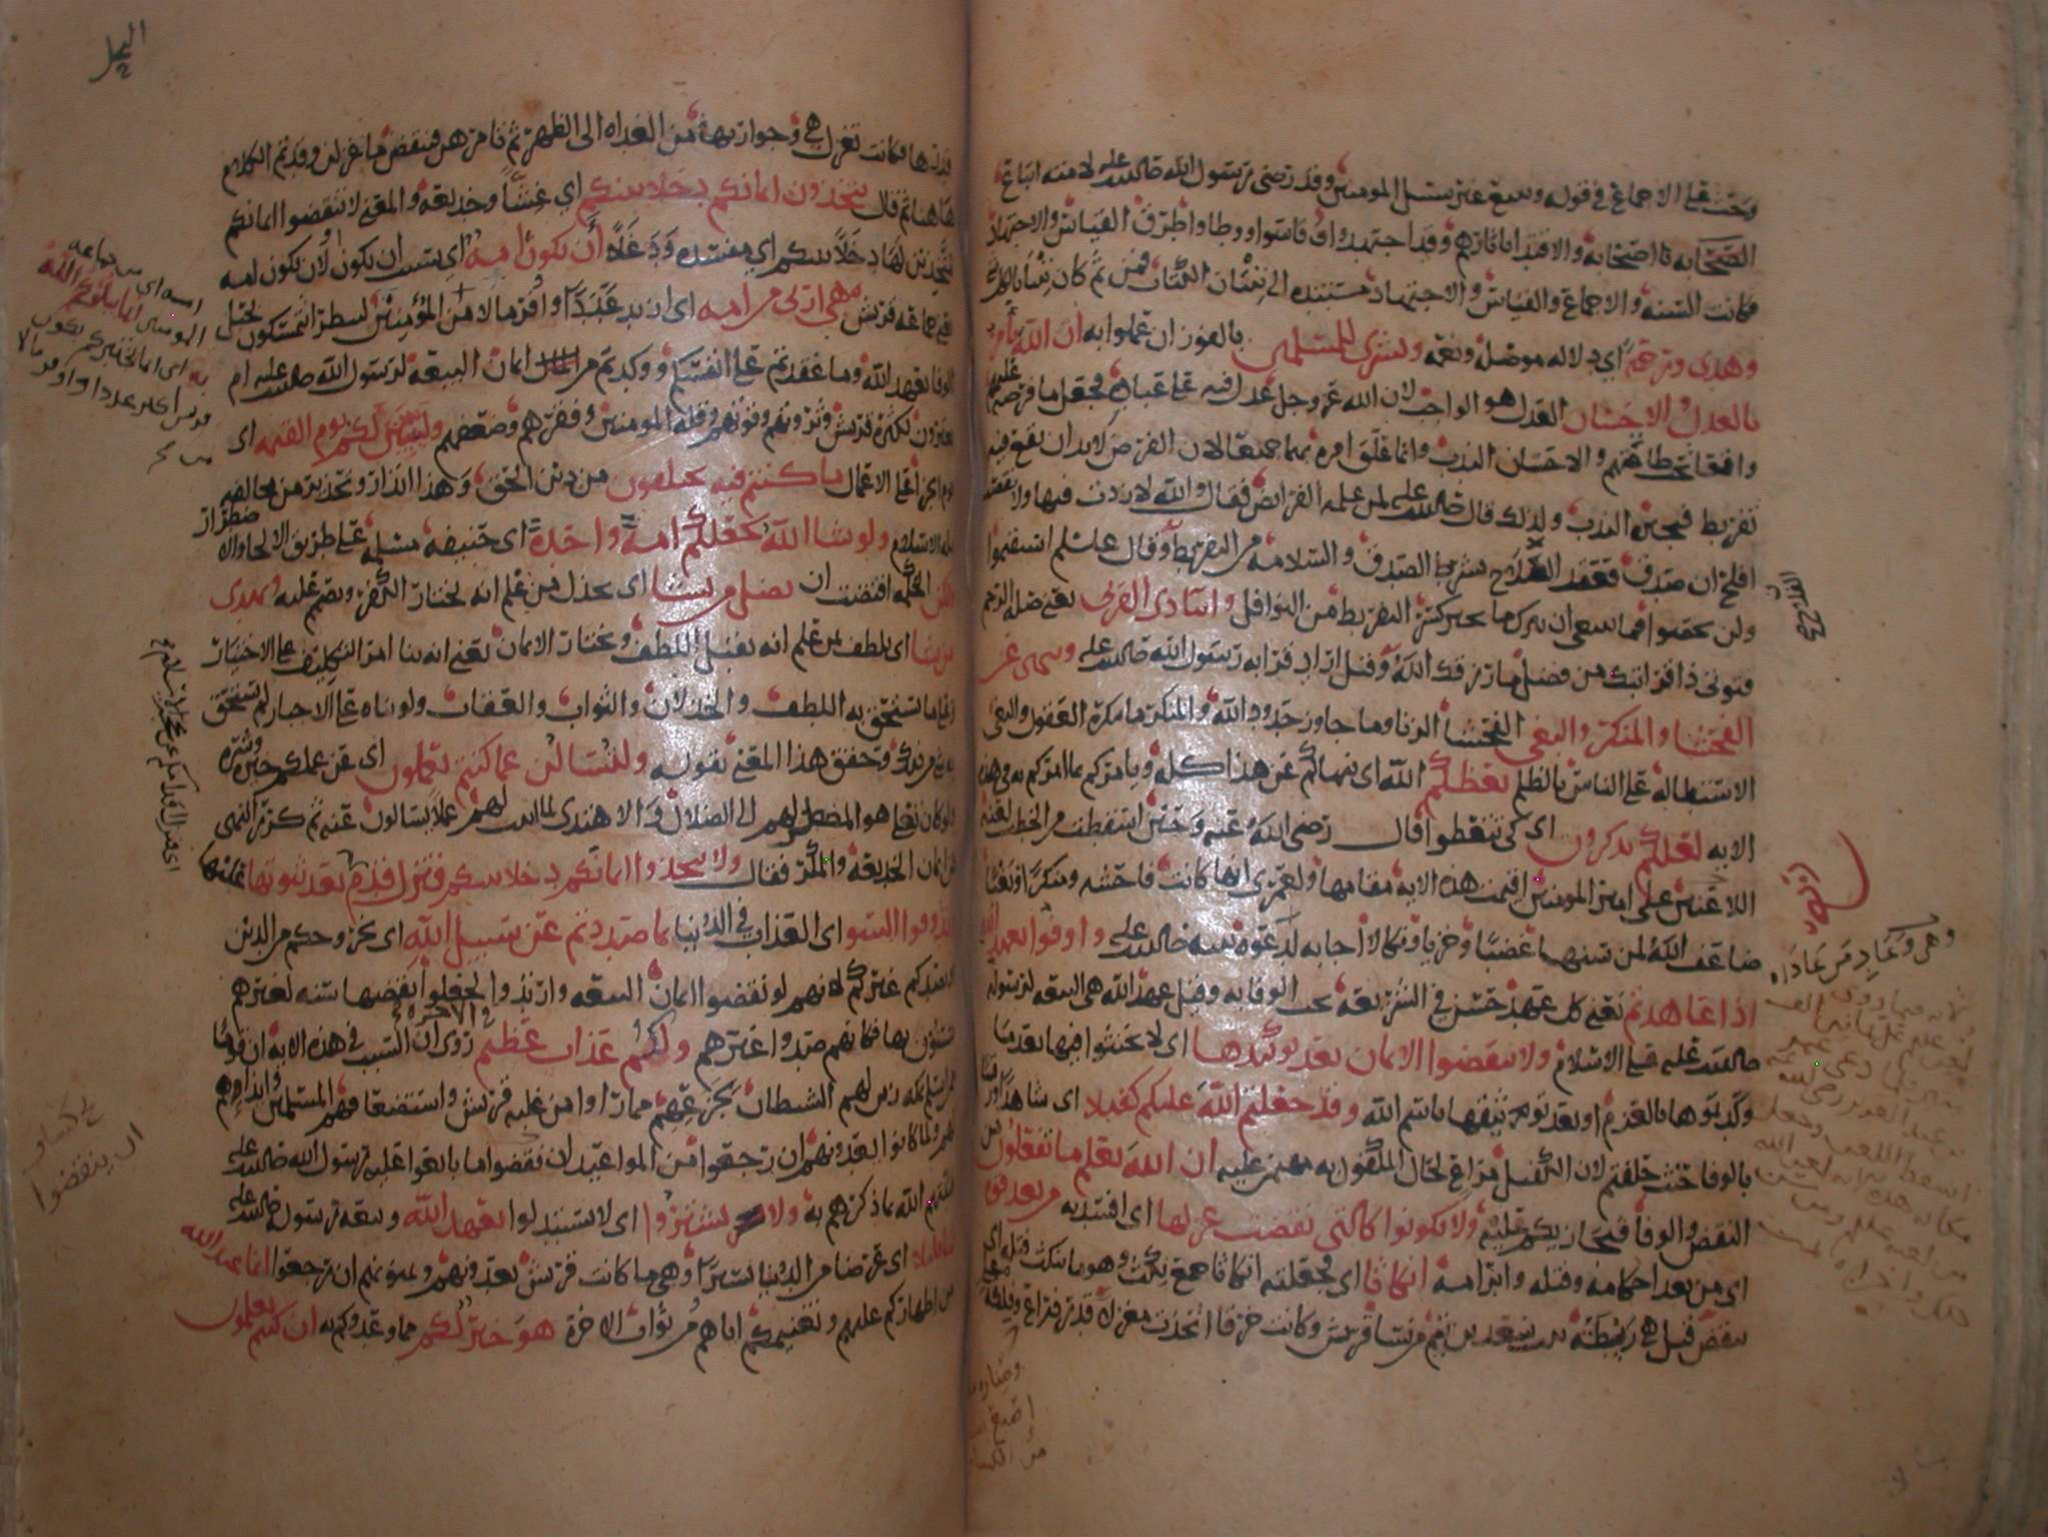 وحث على الاجماع في قوله ويتبع غير سبيل المومنين وقد رضى رسول الله صلى الله عليه لامته اتباع
الصحابه فا اصحابه والاقتدا باثارهم وقد اجتهدوا وقاسوا ووطاوا طرق القياس والاجتهاد
فكانت السنه والاجماع والقياس والاجتهاد مستنده الى تبيان الكتاب فمن ثم كان تبيانا لكل
وهدى ورحمة اي دلاله موصله ونعمه وبشرى للمسلمين بالفوز ان عملوا به ان الله يامر
بالعدل والاحسان العدل هو الواجب لان الله عز وجل عدل فيه على عباده فجعل ما فرضه عليهم
واقعا تحت طاقتهم والاحسان الندب وانما علق امره بهما جميعا لان الفرض لابد ان يقع فيه
تفريط فيجبره الندب ولذلك قال صلى الله عليه لمن علمه الفرائض فقال والله لا زدت فيها ولا نقصت
افلح ان صدق فعقد الفلاح بشرط الصدق والسلامه من التفريط وقال عليه السلم استقيموا
ولن تحصوا فما ينبغي ان يترك ما يجبر كسر التفريط من النوافل وايتا ذي القربى يعني صله الرحم
فتوتي ذا قرابتك من فضل ما رزقك الله وقيل اراد قرابه رسول الله صلى الله عليه وينهى عن
الفحشا والمنكر والبغي الفحشا الزنا وما جاوز حدود الله والمنكر ما نكره العقول والبغي
الاستطاله على الناس بالظلم يعظكم الله اي ينهاكم عن هذا كله ويامركم بما امركم به في هذه
الايه لعلكم تذكرون اي كي تتعظوا قال رضي الله عنه وحين اسقطت من الخطب لعنه
اللاعنين على امير المومنين اقيمت هذه الايه مقامها ولعمري انها كانت فاحشه ومنكرا وبغيا
ضاعف الله لمن سنها غضبا وخزيا ونكالا اجابه لدعوه نبيه صلى الله عليه واوفوا بعهد الله
اذا عاهدتم يعني كل عهد حسن في الشريعه يجب الوفا به وقيل عهد الله هي البيعه لرسوله
صلى الله عليه على الاسلام ولا تنقضوا الايمان بعد توكيدها اي لا تحنثوا فيها بعد ما
وكدتموها بالعزم او بعد توثيقها باسم الله وقد جعلتم الله عليكم كفيلا اي شاهدا ورقيبا
بالوفا حيث حلفتم لان الكفيل مراع لحال المكفول به مهيمن عليه ان الله يعلم ما تفعلون من
النقض والوفا فيجازيكم عليه ولا تكونوا كالتي نقضت غزلها اي افسدته من بعد قوة
اي من بعد احكامه وفتله وابرامه انكاثا اي فجعلته انكاثا جمع نكث وهو ما ينكث فتله اي
ينقض قيل هي ريطه بنت سعد بن تيم من نسا قريش وكانت خرقا اتخذت مغزلا قدر ذراع وفلكه
وهي وعاد من عاداه
قدرها فكانت تغزل هي وجواريها من الغداه الى الظهر ثم تامرهن فينقضن ما غزلن وقد تم الكلام
هاهنا ثم قال تتخذون ايمانكم دخلا بينكم اي غشا وخديعه والمعنى لا تنقضوا ايمانكم
متخذين لها دخلا بينكم اي مفسده ودغلا ان تكون امه اي بسبب ان تكون او لان تكون امه
يعني جماعه قريش هي اربى من امه اي ازيد عددا واوفر مالا من المومنين لينظر اتتمسكون بحبل
الوفا بعهد الله وما عقدتم على انفسكم ووكدتم من ايمان البيعه لرسول الله صلى الله عليه ام
تغترون بكثره قريش وثروتهم وقوتهم وقله المومنين وفقرهم وضعفهم وليبينن لكم يوم القيمه اي
يوم الجزا على الاعمال ما كنتم فيه تختلفون من دين الحق وهذا انذار وتحذير من مخالفه
مله الاسلام ولو شا الله لجعلكم امة واحدة اي حنيفه مسلمه على طريق الالجا والاضطرار
ولكن الحكمه اقتضت ان يضل من يشا اي يخذل من علم انه يختار الكفر ويصمم عليه ويهدي
من يشا اي يلطف بمن علم انه يقبل اللطف ويختار الايمان يعني انه بنا امر التكليف على الاختيار
وعلى ما يستحق به اللطف والخذلان والثواب والعقاب ولو بناه على الاجبار لم يستحق
به شي من ذلك وحقق هذا المعنى بقوله ولتسالن عما كنتم تعملون اي عن عملكم خيره وشره
ولو كان تعالى هو المضطر لهم الى الضلال والاهتدى لما اثبت لهم عملا يسالون عنه ثم كرر النهى
عن ايمان الخديعه والمكر فقال ولا تتخذوا ايمانكم دخلا بينكم فتزل قدم بعد ثبوتها عليها
وتذوقوا السو اي العذاب في الدنيا بما صددتم عن سبيل الله اي بخروجكم من الدين
او بصدكم غيركم لانهم لو نقضوا ايمان البيعه وارتدوا لجعلوا نقضها سنه لغيرهم
يستنون بها فكانهم صدوا غيرهم ولكم عذاب عظيم في الاخره روي ان السبب في هذه الايه ان قوما
ممن اسلم بمكه زين لهم الشيطان بجزعهم مما راوا من غلبه قريش واستضعافهم المسلمين وايذاوهم
لهم ولما كانوا يعدونهم ان رجعوا من المواعيد ان نقضوا ما بايعوا عليه رسول الله صلى الله عليه
فثبتهم الله بما ذكرهم به ولا تشتروا اي لا تستبدلوا بعهد الله وبيعه رسوله صلى الله عليه
ثمنا قليلا اي عرضا من الدنيا يسيرا وهي ما كانت قريش يعدونهم ويمنونهم ان رجعوا انما عند الله
من اظهاركم عليهم وتغنيمكم اياهم من ثواب الاخرة هو خير لكم مما وعدوكم به ان كنتم تعلمون